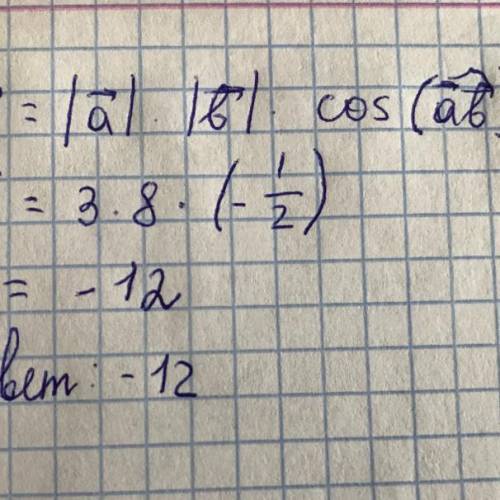 = |a⃗| · |b⃗| · cos(a⃗b⃗
= 3 · 8 · (-1/2)
= -12
вет: -12